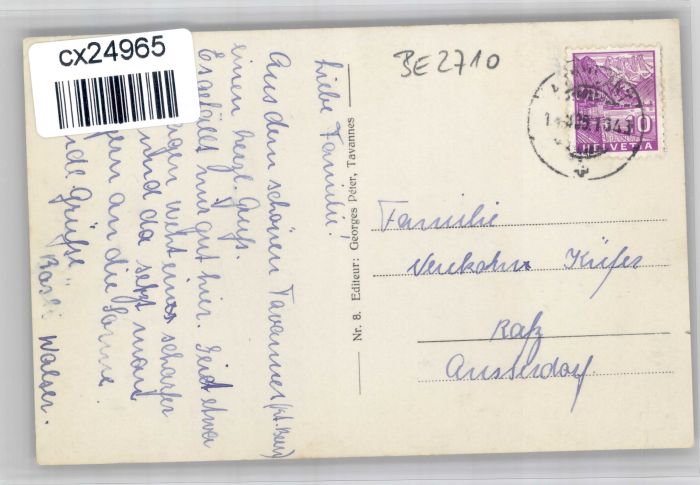 cx24965
BE2710
Liebe Familie!
Aus dem schönen Tavannes (kt. Bern)
einen herzl. Gruss.
Es gefällt mir gut hier. Seit etwa
gen weht ein scharfer
und da setzt man
an die Sonne.
Grüsse
Walser.
Nr. 8. Editeur: Georges Péter, Tavannes
HELVETIA
10
Familie
Küfer
Rafz
Ausserdorf